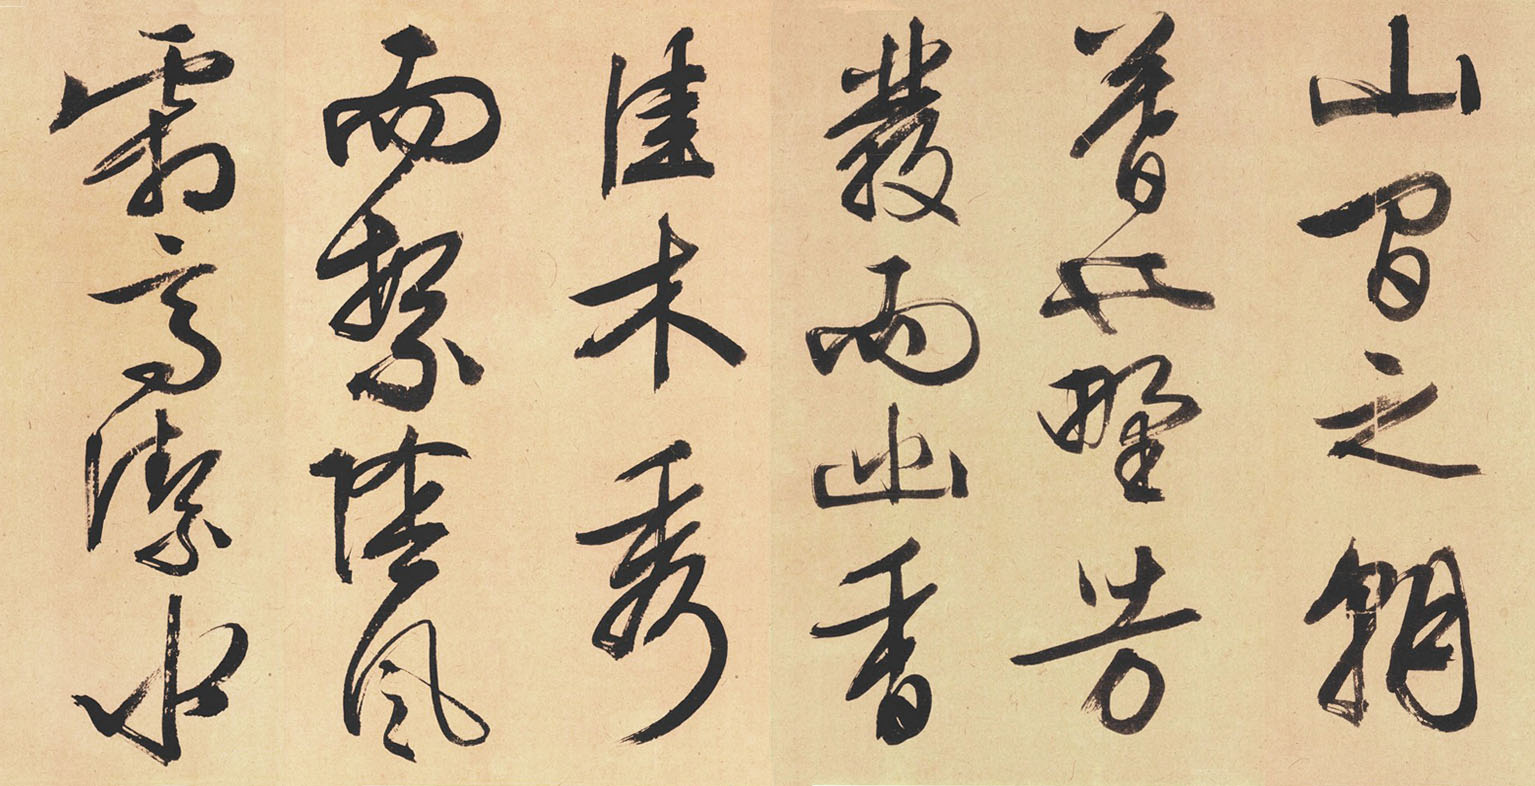 山間之朝
暮也野芳
發而幽香
佳木秀
而繁陰風
霜高潔水